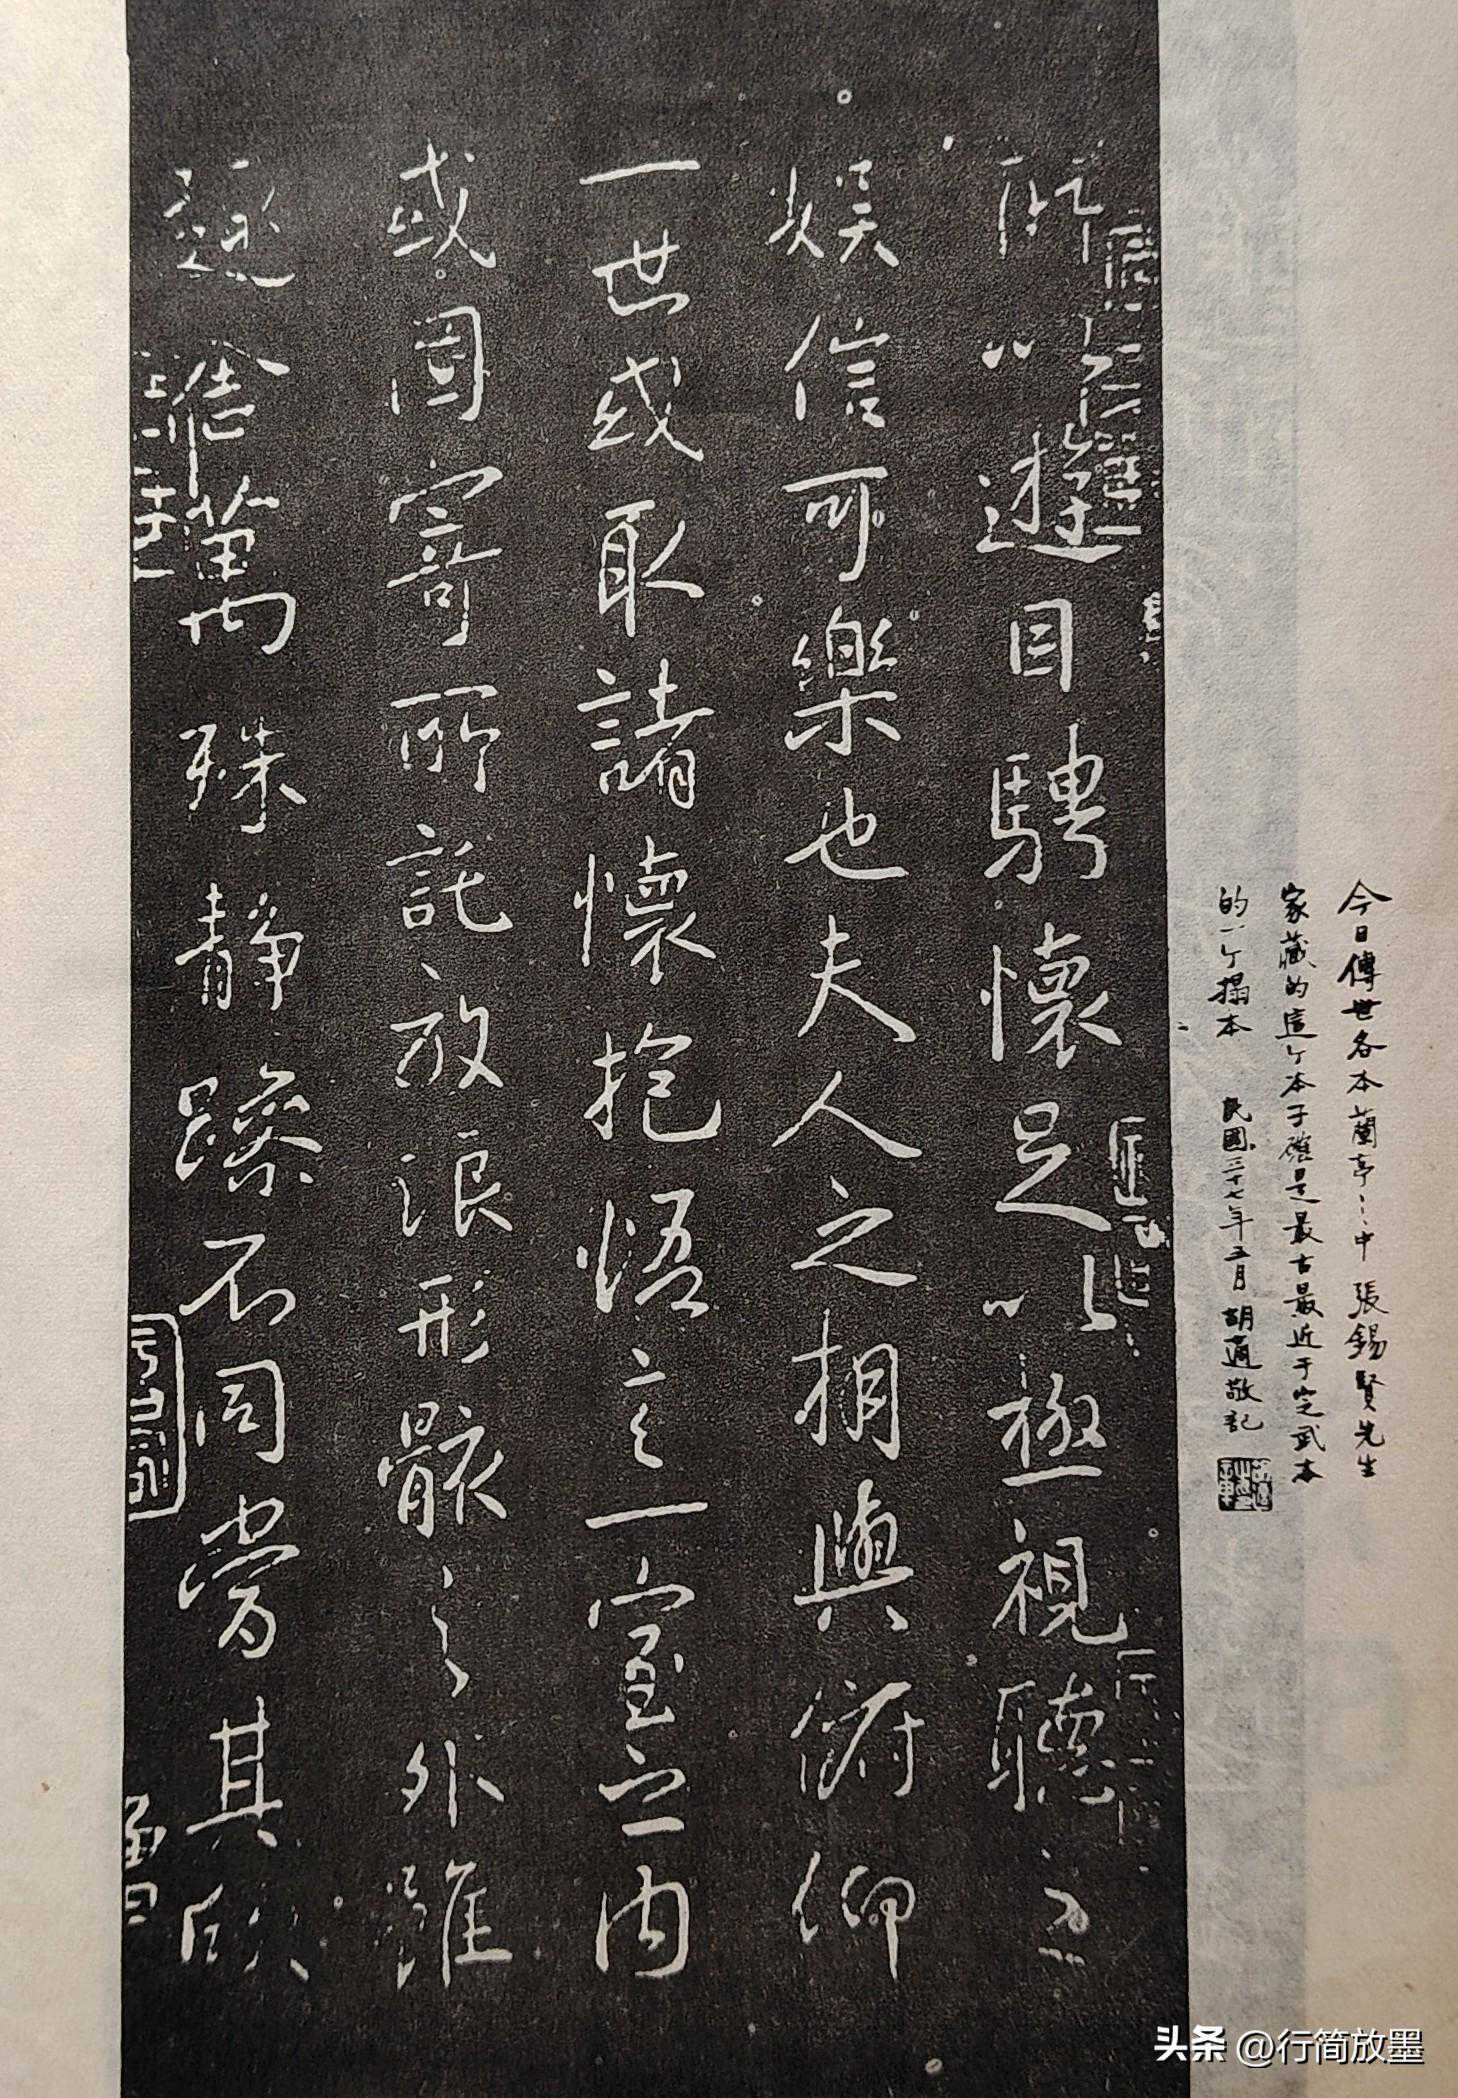 今日傳世各本蘭亭之中張錫賢先生
家藏的這个本子確是最古最近于定武本
的一个搨本 民國三十七年五月 胡適敬記
所以遊目騁懷足以極視聽之
娛信可樂也夫人之相與俯仰
一世或取諸懷抱悟言一室之內
或因寄所託放浪形骸之外雖
趣舍萬殊靜躁不同當其欣
头条 @行简放墨